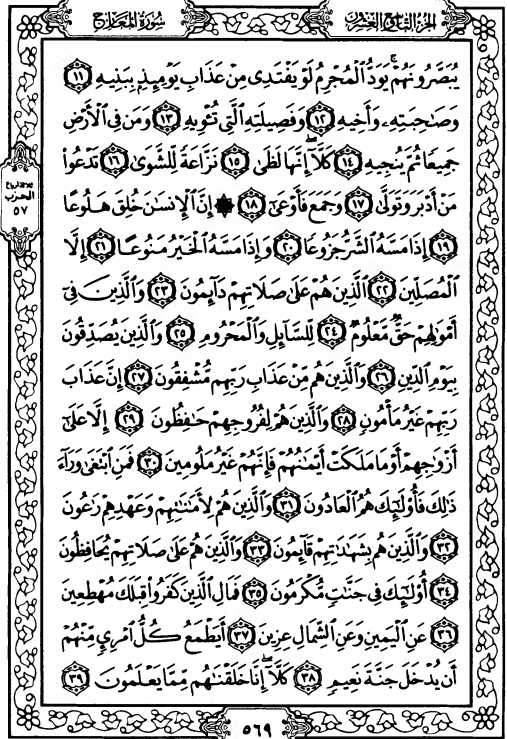 سُورَةُ المَعَارِجِ
الجُزءُ التَّاسِعُ وَالعِشرُونَ
يُبَصَّرُونَهُمْ يَوَدُّ الْمُجْرِمُ لَوْ يَفْتَدِى مِنْ عَذَابِ يَوْمِئِذٍ بِبَنِيهِ ١١
وَصَـٰحِبَتِهِۦ وَأَخِيهِ ١٢ وَفَصِيلَتِهِ الَّتِى تُـْٔوِيهِ ١٣ وَمَن فِى الْأَرْضِ
جَمِيعًا ثُمَّ يُنجِيهِ ١٤ كَلَّآ إِنَّهَا لَظَىٰ ١٥ نَزَّاعَةً لِّلشَّوَىٰ ١٦ تَدْعُوا۟
مَنْ أَدْبَرَ وَتَوَلَّىٰ ١٧ وَجَمَعَ فَأَوْعَىٰٓ ١٨ ۞ إِنَّ الْإِنسَـٰنَ خُلِقَ هَلُوعًا
١٩ إِذَا مَسَّهُ الشَّرُّ جَزُوعًا ٢٠ وَإِذَا مَسَّهُ الْخَيْرُ مَنُوعًا ٢١ إِلَّا
الْمُصَلِّينَ ٢٢ الَّذِينَ هُمْ عَلَىٰ صَلَاتِهِمْ دَآئِمُونَ ٢٣ وَالَّذِينَ فِىٓ
أَمْوَٰلِهِمْ حَقٌّ مَّعْلُومٌ ٢٤ لِّلسَّآئِلِ وَالْمَحْرُومِ ٢٥ وَالَّذِينَ يُصَدِّقُونَ
بِيَوْمِ الدِّينِ ٢٦ وَالَّذِينَ هُم مِّنْ عَذَابِ رَبِّهِم مُّشْفِقُونَ ٢٧ إِنَّ عَذَابَ
رَبِّهِمْ غَيْرُ مَأْمُونٍ ٢٨ وَالَّذِينَ هُمْ لِفُرُوجِهِمْ حَـٰفِظُونَ ٢٩ إِلَّا عَلَىٰٓ
أَزْوَٰجِهِمْ أَوْ مَا مَلَكَتْ أَيْمَـٰنُهُمْ فَإِنَّهُمْ غَيْرُ مَلُومِينَ ٣٠ فَمَنِ ابْتَغَىٰ وَرَآءَ
ذَٰلِكَ فَأُو۟لَـٰٓئِكَ هُمُ الْعَادُونَ ٣١ وَالَّذِينَ هُمْ لِأَمَـٰنَـٰتِهِمْ وَعَهْدِهِمْ رَٰعُونَ
٣٢ وَالَّذِينَ هُم بِشَهَـٰدَٰتِهِمْ قَآئِمُونَ ٣٣ وَالَّذِينَ هُمْ عَلَىٰ صَلَاتِهِمْ يُحَافِظُونَ
٣٤ أُو۟لَـٰٓئِكَ فِى جَنَّـٰتٍ مُّكْرَمُونَ ٣٥ فَمَالِ الَّذِينَ كَفَرُوا۟ قِبَلَكَ مُهْطِعِينَ
٣٦ عَنِ الْيَمِينِ وَعَنِ الشِّمَالِ عِزِينَ ٣٧ أَيَطْمَعُ كُلُّ امْرِئٍ مِّنْهُمْ
أَن يُدْخَلَ جَنَّةَ نَعِيمٍ ٣٨ كَلَّآ إِنَّا خَلَقْنَـٰهُم مِّمَّا يَعْلَمُونَ ٣٩
الحزب
٥٧
٥٦٩